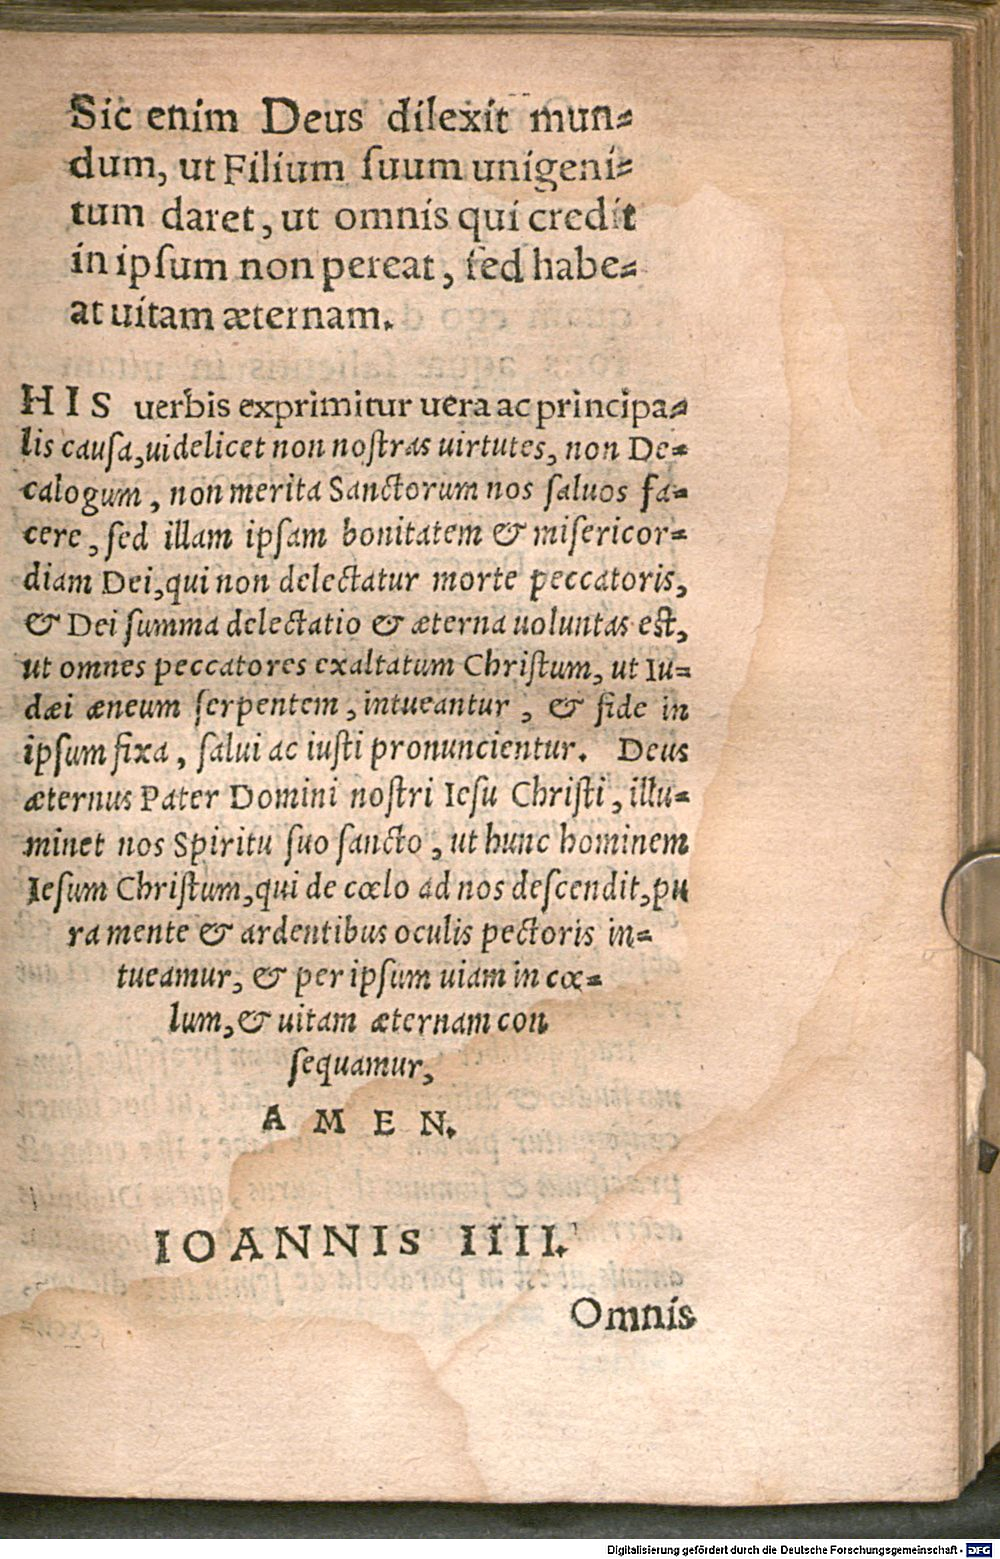 Sic enim Deus dilexit mun⸗
dum, ut Filium ſuum unigeni⸗
tum daret, ut omnis qui credit
in ipſum non pereat, ſed habe⸗
at uitam æternam.
HIS uerbis exprimitur uera ac principa⸗
lis cauſa, uidelicet non noſtras uirtutes, non De⸗
calogum, non merita Sanctorum nos ſaluos fa⸗
cere, ſed illam ipſam bonitatem & miſericor⸗
diam Dei, qui non delectatur morte peccatoris,
& Dei ſumma delectatio & æterna uoluntas eſt,
ut omnes peccatores exaltatum Chriſtum, ut Iu⸗
dæi æneum ſerpentem, intueantur, & fide in
ipſum fixa, ſalui ac iuſti pronuncientur. Deus
æternus Pater Domini noſtri Ieſu Chriſti, illu⸗
minet nos Spiritu ſuo ſancto, ut hunc hominem
Ieſum Chriſtum, qui de cœlo ad nos deſcendit, pu
ra mente & ardentibus oculis pectoris in⸗
tueamur, & per ipſum uiam in cœ⸗
lum, & uitam æternam con
ſequamur,
AMEN.
IOANNIS IIII.
Omnis
Digitalisierung gefördert durch die Deutsche Forschungsgemeinschaft - DFG